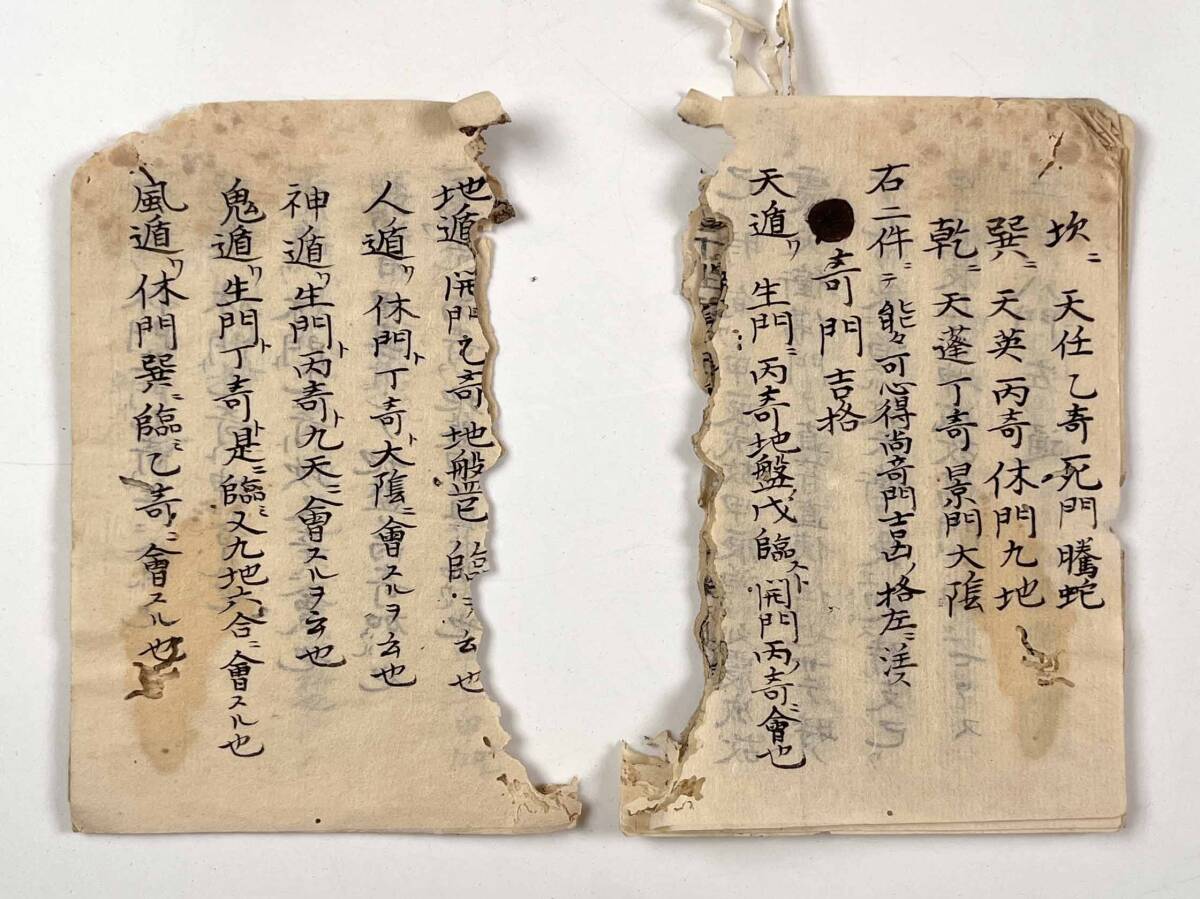 坎ニ 天任乙奇死門騰蛇
巽ニ 天英丙奇休門九地
乾ニ 天蓬丁奇景門大陰
右二件ニテ能々可心得尚奇門吉凶ノ格左ニ詳ス
●奇門吉格
天遁ハ 生門ニ丙奇地盤戊臨スト開門丙ノ奇ニ會也
地遁 開門乙奇地盤己 臨ヲ云也
人遁ハ 休門ト丁奇ト大陰ニ會スルヲ云也
神遁ハ 生門ト丙奇ト九天ニ會スルヲ云也
鬼遁ハ 生門ト丁奇ト是ニ臨ニ又九地六合ニ會スル也
風遁ハ 休門巽ニ臨ニ乙奇ニ會スル也